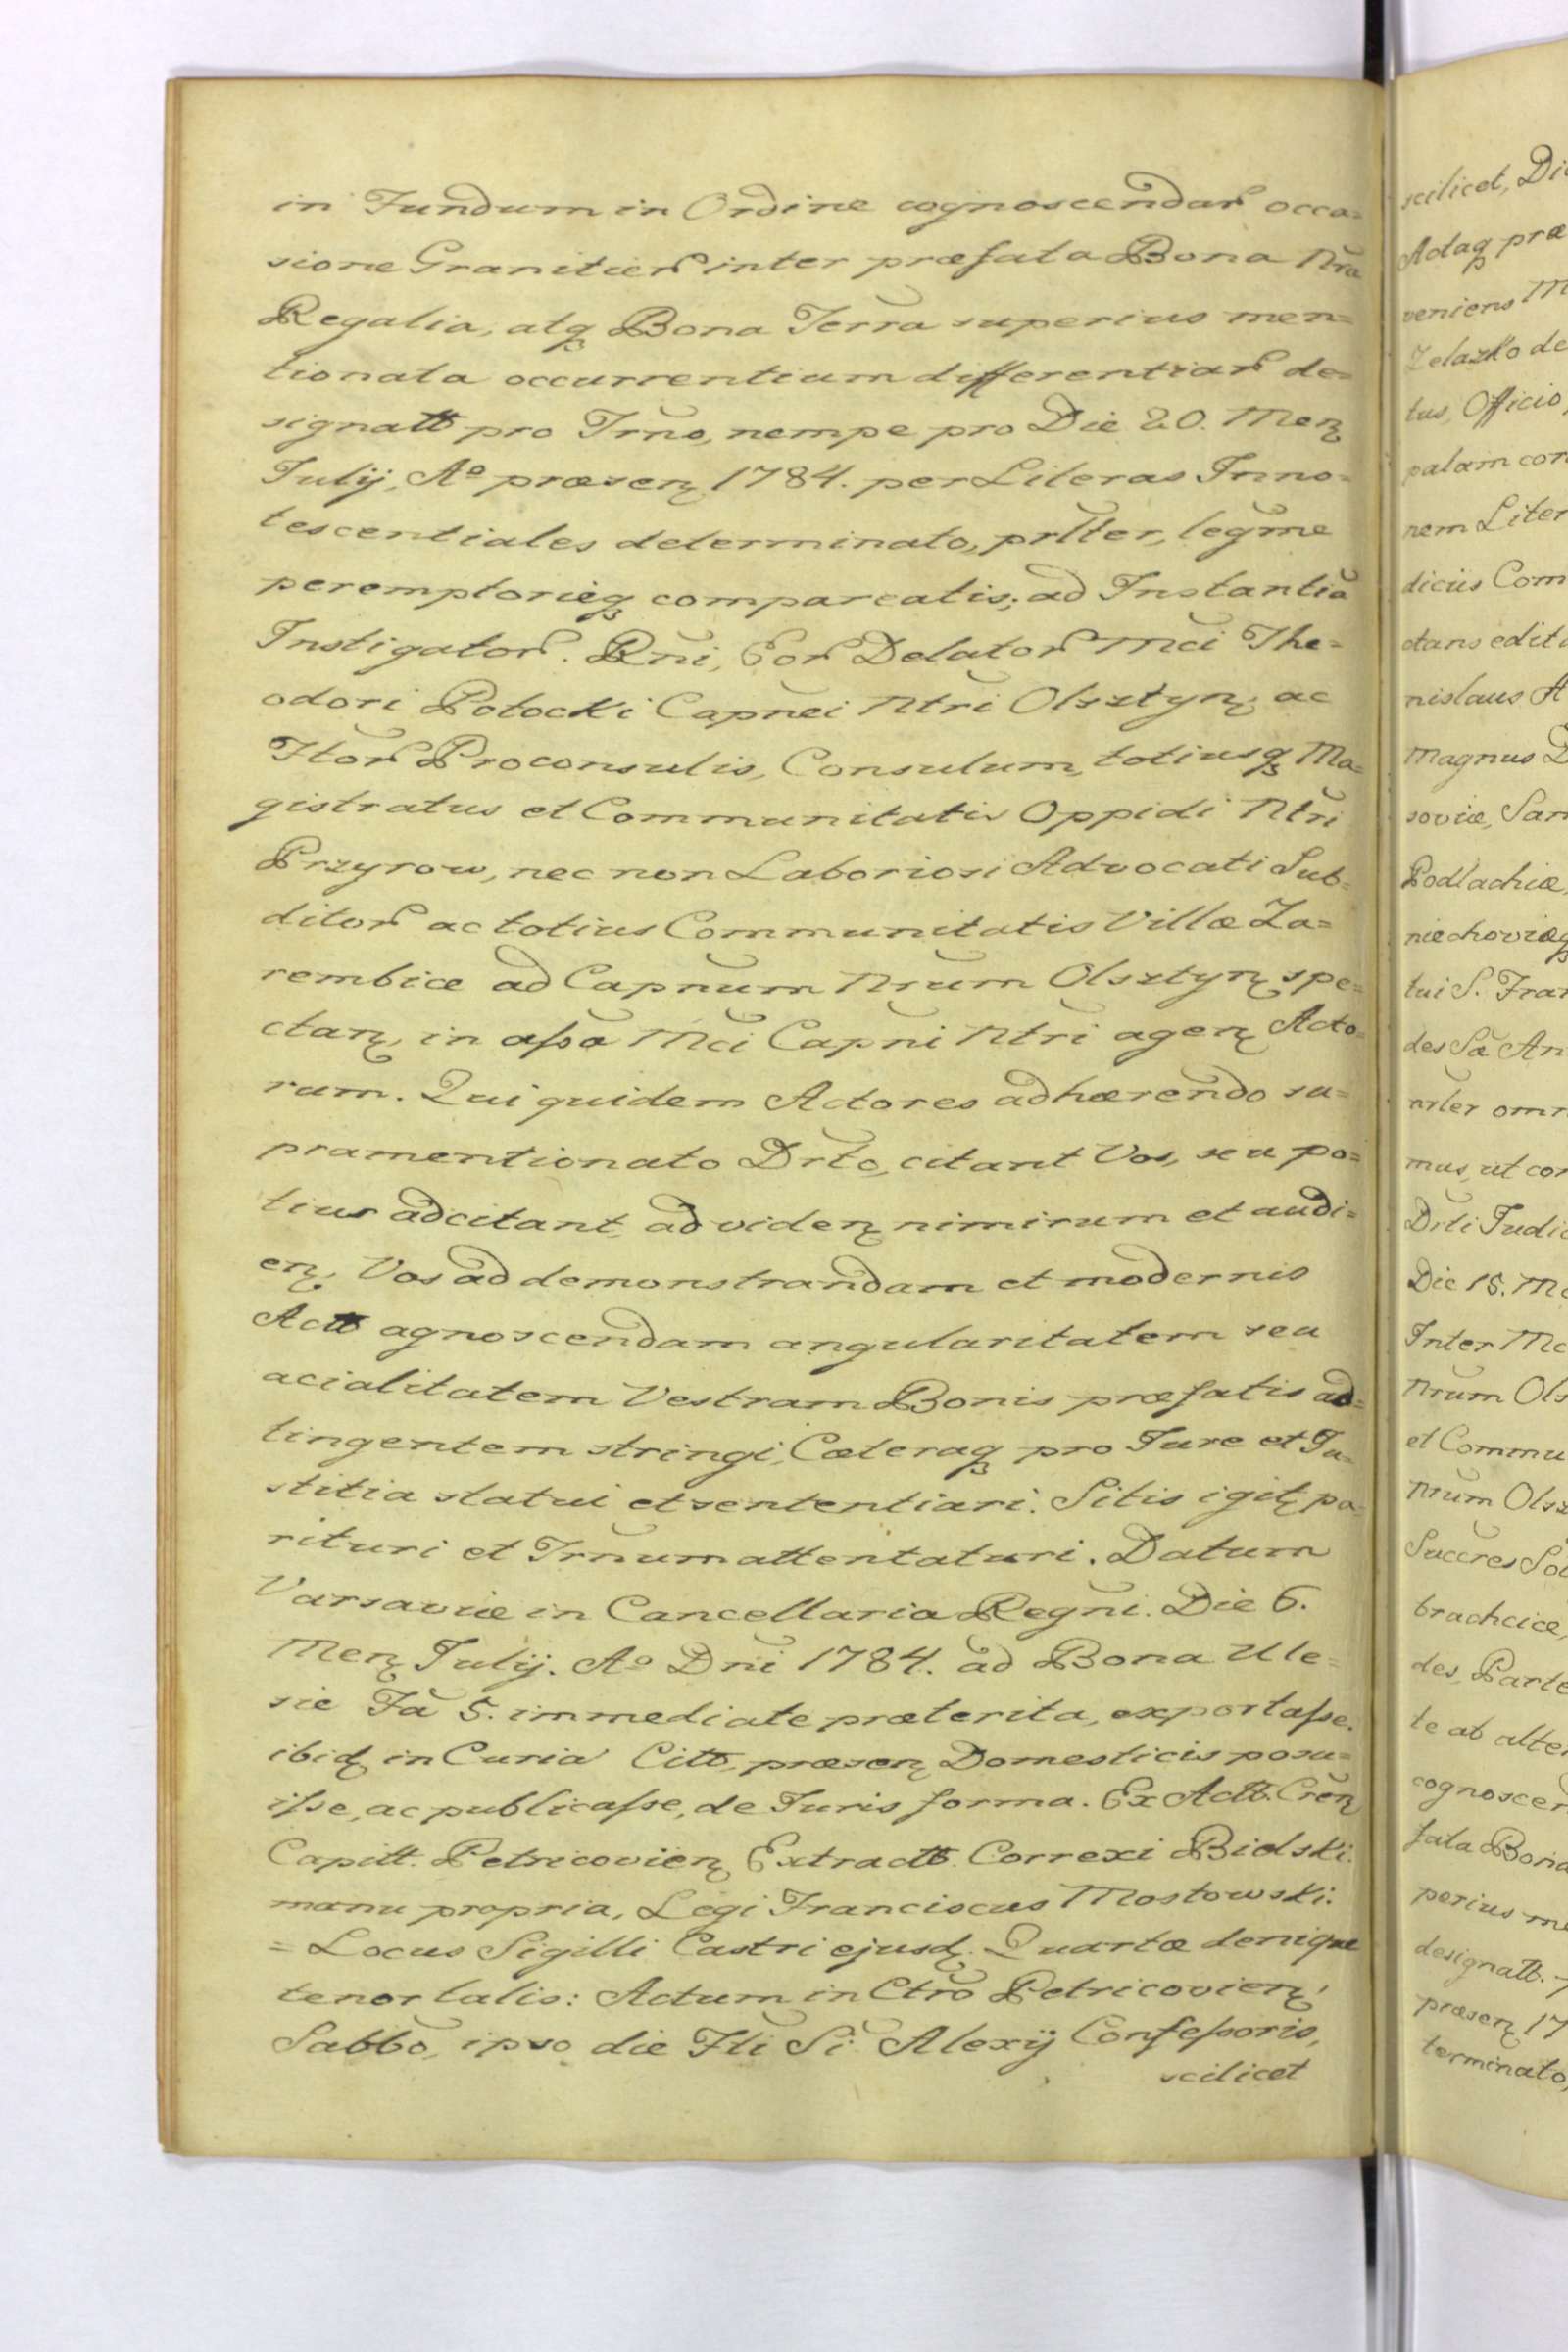 in Fundum in Ordine cognoscendar occa=
sione Granitier inter præfata Bona Nra
Regalia, atq Bona Terra superius men=
tionata occurrentium differentiar de=
signatt pro Trno, nempe pro Die 20. Men
Julij, Aº præsen 1784. per Literas Inno=
tescentiales determinato, prltter, legme
peremptorieq compareatis; ad Instantia
Instigator. Rni, Eor Delator Mci The=
odori Potocki Capnei Ntri Olsztyn, ac
Htor Proconsulis, Consulum, totiusq Ma=
gistratus et Communitatis Oppidi Ntri
Przyrow, nec non Laboriosi Advocati Sub=
ditor ac totius Communitatis Villæ Za=
rembice ad Capnum Nrum Olsztyn spe=
ctan, in assa Mci Capni Ntri agen Acto=
rum. Qui quidem Actores adhærendo su=
pramentionato Drto, citant Vos, seu po=
tius adcitant, ad viden nimirum et audi=
en, Vos ad demonstrandam et modernis
Actt agnoscendam angularitatem seu
acialitatem Vestram Bonis præfatis ad=
tingentem stringi, Cæteraq pro Jure et Ju=
stitia statui et sententiari. Sitis igit pa=
rituri et Trnum attentaturi. Datum
Varsaviæ in Cancellaria Regni. Die 6.
Men Julij. Aº Dni 1784. ad Bona Ule=
sie Fa 5. immediate præterita, exportasse.
ibid in Curia Citt, præsen Domesticis posu=
isse, ac publicasse, de Juris forma. Ex Actt. Cren
Capitt. Petricovien Extractt. Correxi Bielski.
manu propria, Legi Franciscus Mostowski.
= Locus Sigilli Castri ejusd. Quartæ denique
tenor talis: Actum in Ctro Petricovien,
Sabbo, ipso die Fti Si Alexij Confessoris,
scilicet
scilicet, Die
Actaq præ
veniens M
Zelazko de
tus, Officio
palam cor
nem Liter
dicüs Com
ctans edit
nislaus A
Magnus D
soviæ, Sam
Podlachiæ,
niechoviæq
tui S. Fran
des Sæ An
nrler omn
mus, ut con
Drti Judic
Die 15. Me
Inter Mc
Nrum Ols
et Commu
Nrum Olsz
Succres Sol
brachcice,
des, Parte
te ab alte
cognoscen
fata Bona
perius me
designatt.
præsen 17
terminato,